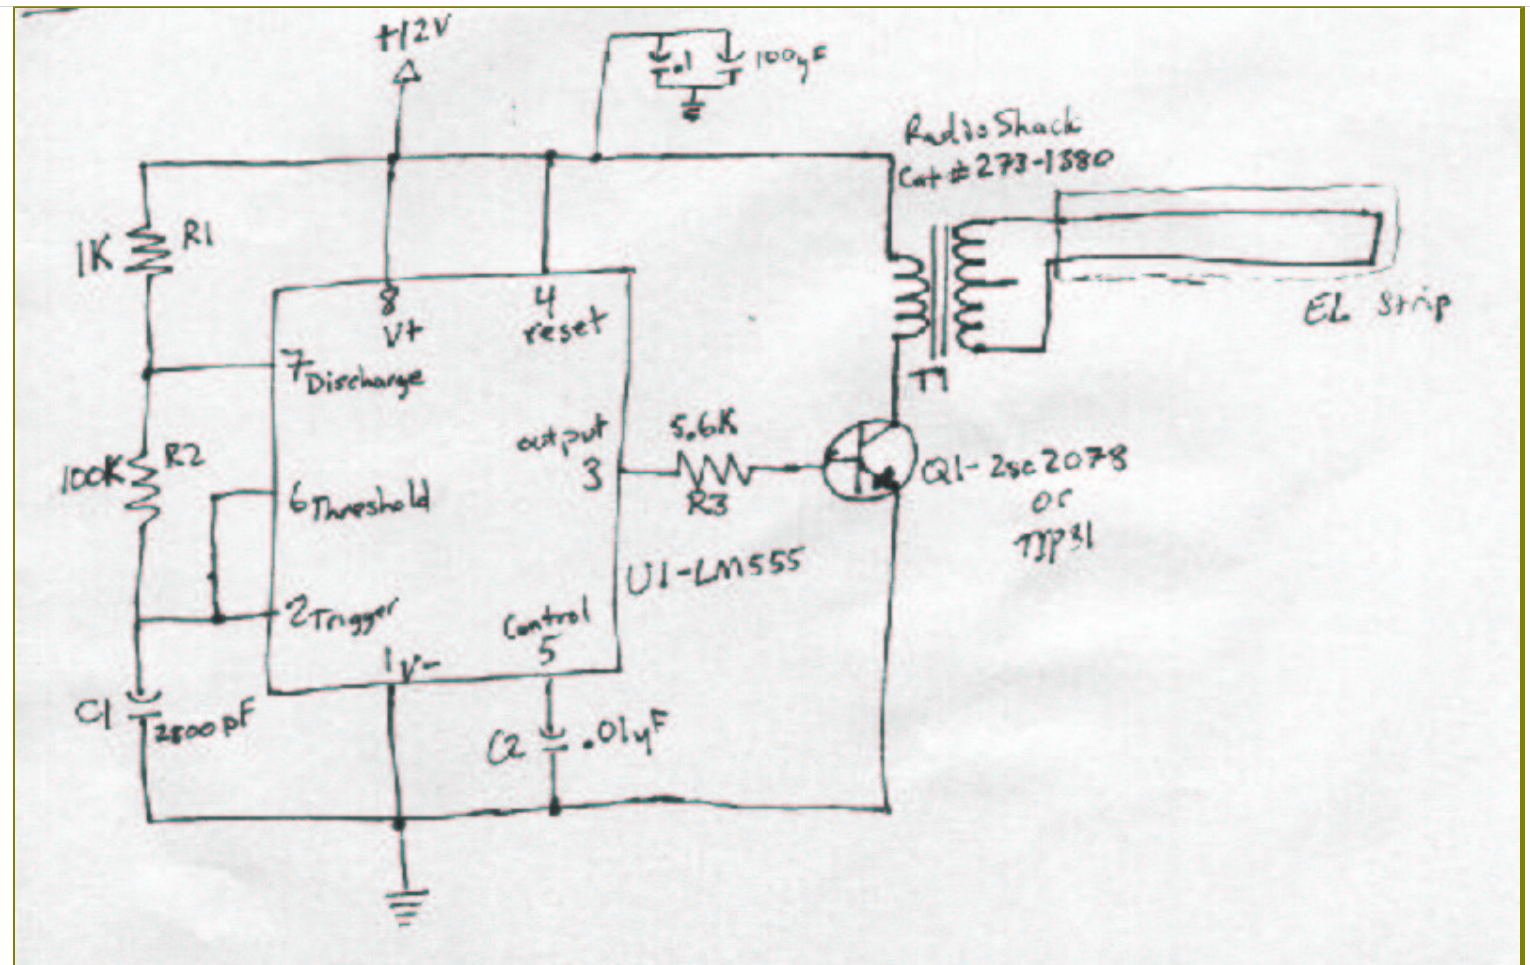 +12V
.1
100µF
RadioShack
Cat # 273-1380
1K
R1
8
V+
4
reset
7 Discharge
T1
EL Strip
100K
R2
output
3
5.6K
R3
Q1-2sc2078
or
TIP31
6 Threshold
U1-LM555
2 Trigger
Control
5
1 V-
C1
2800pF
C2
.01µF